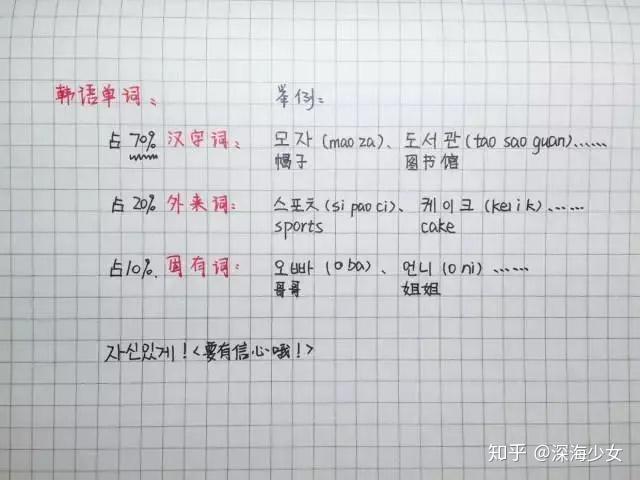 韩语单词: 举例:
占70% 汉字词: 모자(mao za)、도서관(tao sao guan)......
帽子 图书馆
占20% 外来词: 스포츠(si pao ci)、케이크(kei i k)、......
sports cake
占10%. 固有词: 오빠(o ba)、언니(o ni)......
哥哥 姐姐
자신있게!<要有信心哦!>
知乎 @深海少女